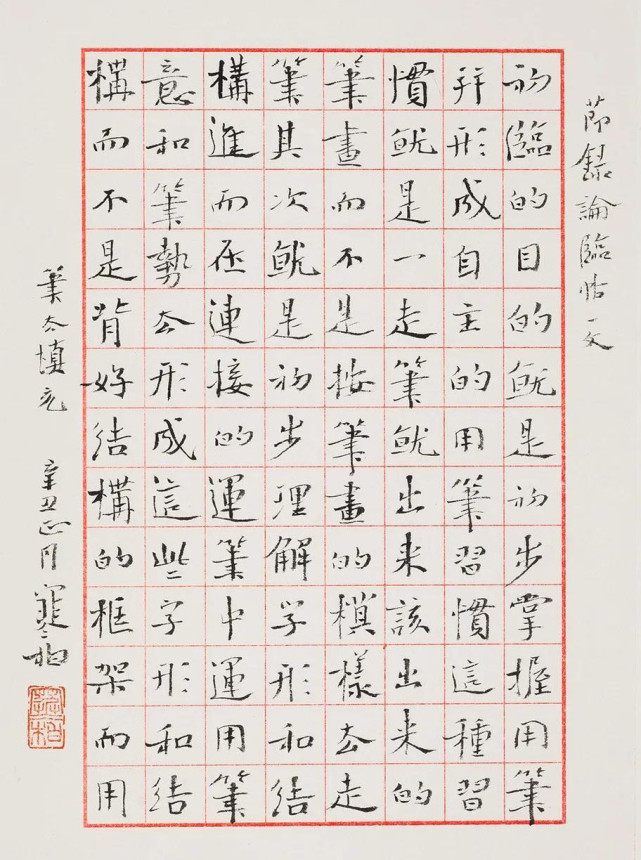 節録論臨帖一文
初臨的目的就是初步掌握用筆
并形成自主的用筆習慣這種習
慣就是一走筆就出来該出来的
筆畫而不是按筆畫的模樣去走
筆其次就是初步理解字形和結
構進而在連接的運筆中運用筆
意和筆勢去形成這些字形和結
構而不是背好結構的框架而用
筆去填充 辛丑正月 寒柏